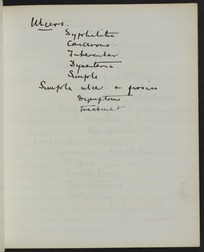 Ulcers.
Syphilitic
Cancerous
Tubercular
Dysenteric
Simple
Simple ulcer &
Symptoms
Treatment